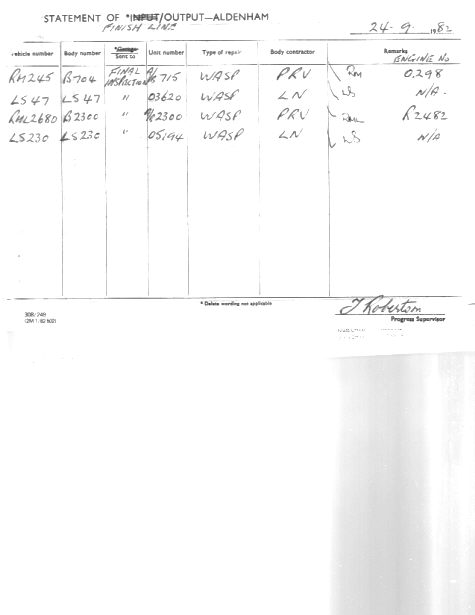 STATEMENT OF *INPUT/OUTPUT—ALDENHAM
FINISH LINE
24-9-1982
Vehicle number Body number *Garage Sent to Unit number Type of repair Body contractor Remarks
ENGINE No
RM245 B704 FINAL INSPECTION 715 WASP PRV RM 0,298
LS47 LS47 " 03620 WASP LN LS N/A
RML2680 B2300 " 2300 WASP PRV RML R2482
LS230 LS230 " 05194 WASP LN LS N/A
* Delete wording not applicable
308/249
(2M 1.82 802)
J Robertson
Progress Supervisor